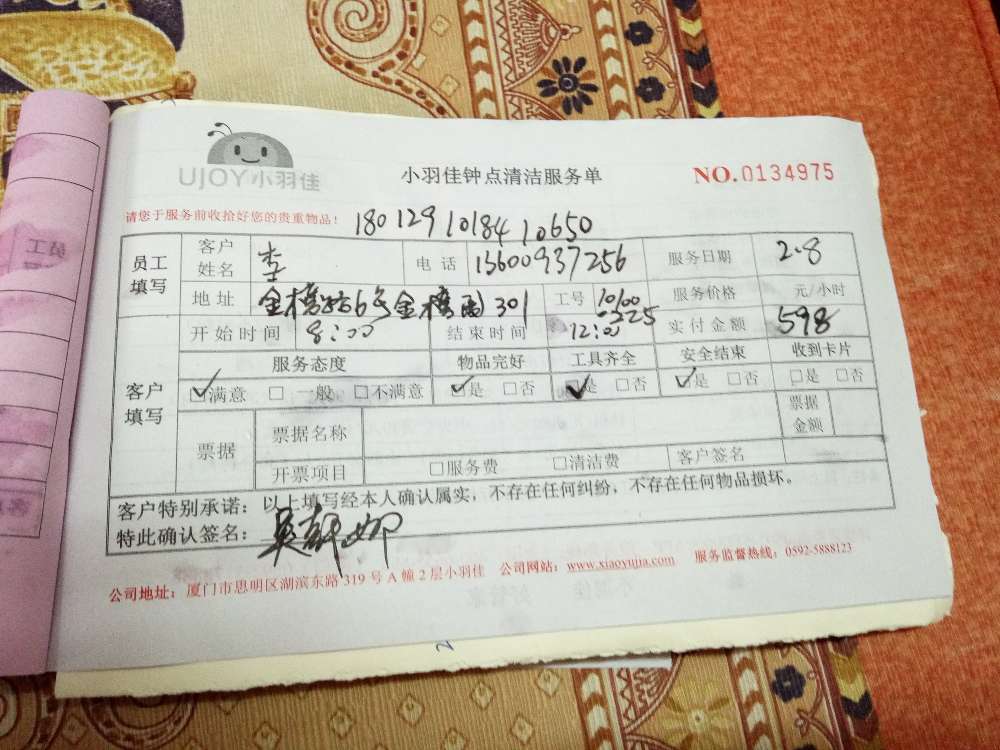 UJOY小羽佳
小羽佳钟点清洁服务单
NO.0134975
请您于服务前收拾好您的贵重物品!
180129101841 0650
员工填写 客户姓名 李 电话 13600937256 服务日期 2.8
地址 金榜路6号金榜园301 工号 服务价格 元/小时
开始时间 8:00 结束时间 12:00 实付金额 598
客户填写 服务态度 物品完好 工具齐全 安全结束 收到卡片
☑满意 □一般 □不满意 ☑是 □否 ☑是 □否 ☑是 □否 □是 □否
票据 票据名称 票据金额
开票项目 □服务费 □清洁费 客户签名
客户特别承诺:以上填写经本人确认属实,不存在任何纠纷,不存在任何物品损坏。
特此确认签名:
公司地址:厦门市思明区湖滨东路319号A幢2层小羽佳 公司网站:www.xiaoyujia.com 服务监督热线:0592-5888123